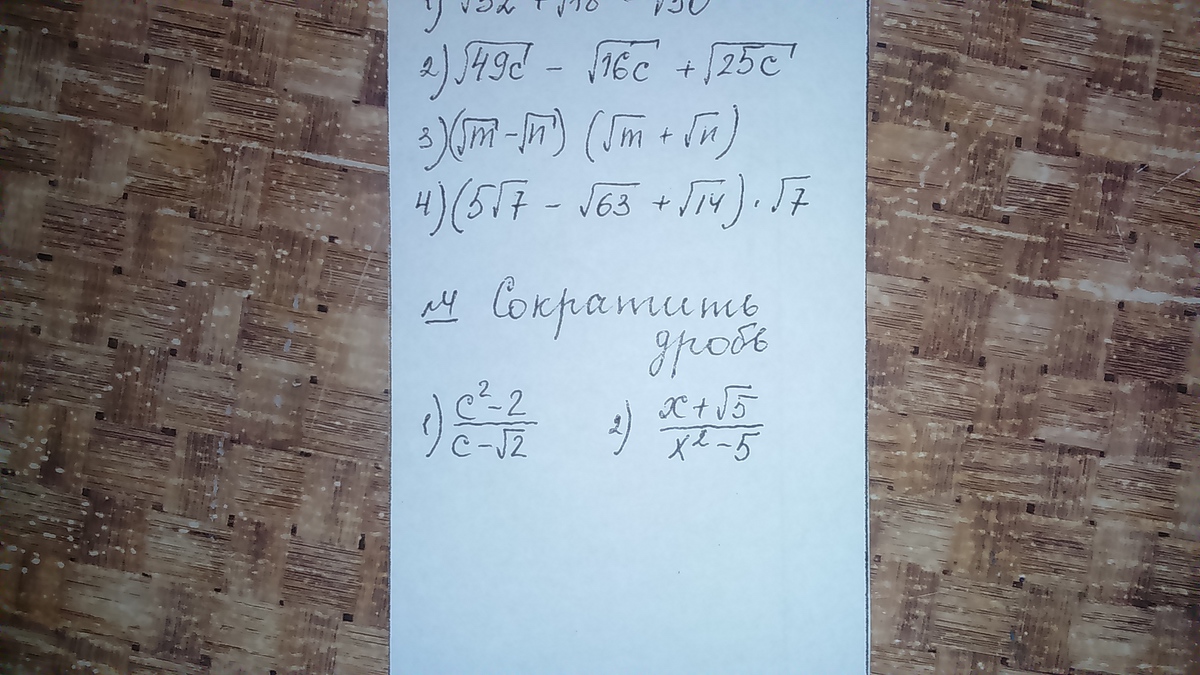 2) √49c − √16c + √25c
3) (√m − √n) (√m + √n)
4) (5√7 − √63 + √14) · √7
№4 Сократить
дробь
1) (c² − 2)/(c − √2) 2) (x + √5)/(x² − 5)